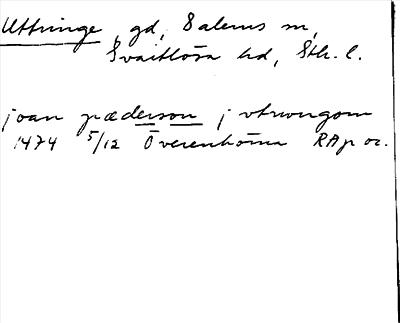 Uttringe, gd, Salems sn,
Svartlösa hd, Sth. l.
joan pæderson j vtrungom
1474 5/12 Överenhörna RAp or.